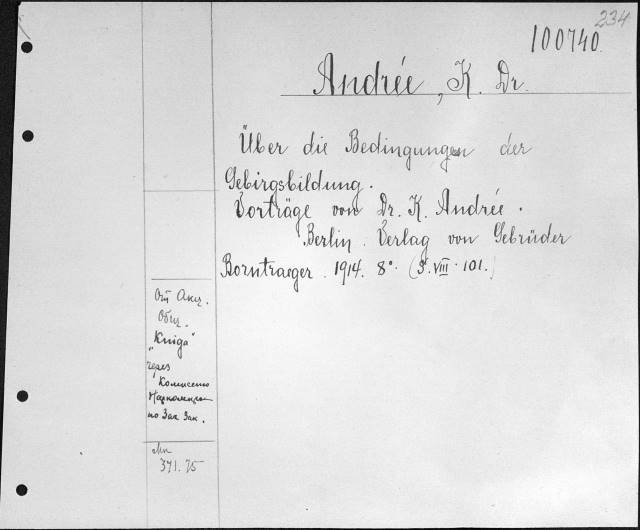 234
100740.
Andrée, K. Dr.
Über die Bedingungen der
Gebirgsbildung.
Vorträge von Dr. K. Andrée.
Berlin. Verlag von Gebrüder
Borntraeger. 1914. 8°. (S. VIII. 101.)
От Акц.
Общ.
„Kniga"
через
Комиссию
по Зак Зак.
371.75